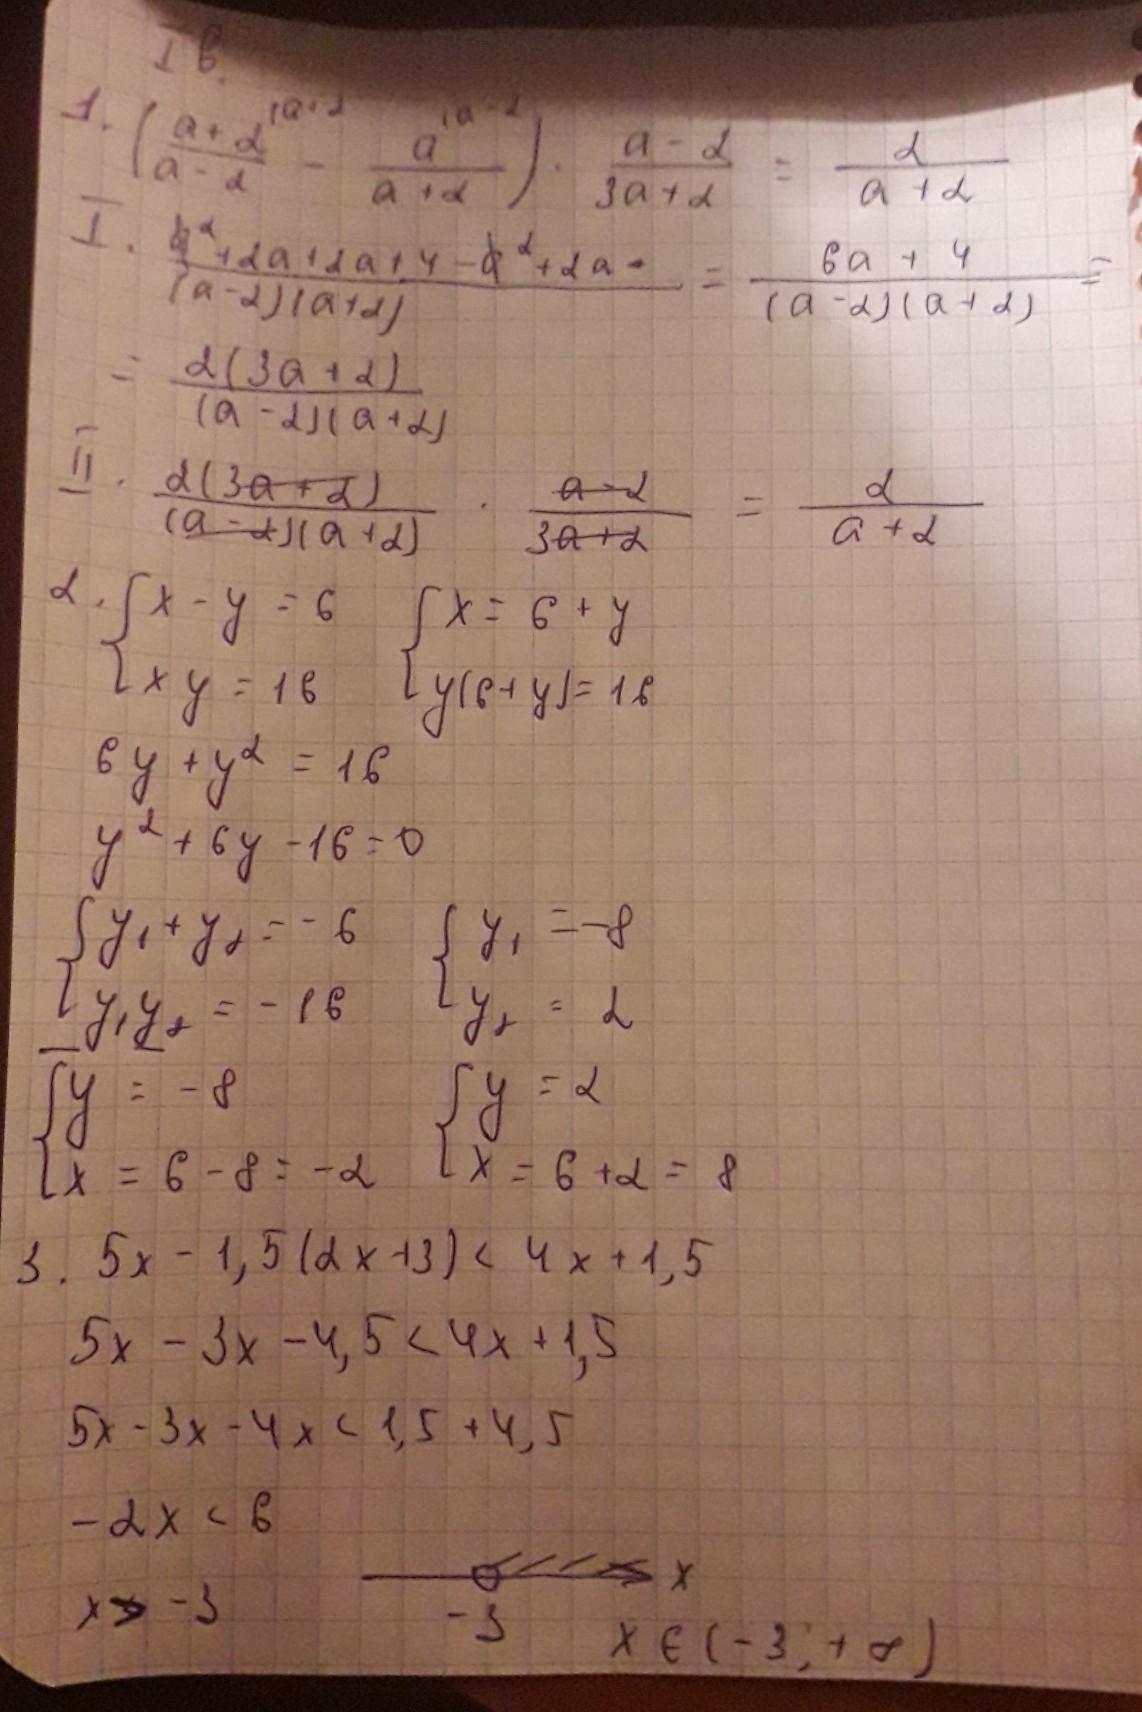 I в.
1. ( (a+2)/(a-2) ^(a+2 - a/(a+2) ^(a-2 ) · (a-2)/(3a+2) = 2/(a+2)
I. (a²+2a+2a+4-a²+2a)/((a-2)(a+2)) = (6a+4)/((a-2)(a+2)) =
= 2(3a+2)/((a-2)(a+2))
II. 2(3a+2)/((a-2)(a+2)) · (a-2)/(3a+2) = 2/(a+2)
2. { x - y = 6 { x = 6 + y
{ xy = 16 { y(6+y) = 16
6y + y² = 16
y² + 6y - 16 = 0
{ y₁ + y₂ = -6 { y₁ = -8
{ y₁y₂ = -16 { y₂ = 2
{ y = -8 { y = 2
{ x = 6 - 8 = -2 { x = 6 + 2 = 8
3. 5x - 1,5(2x+3) < 4x + 1,5
5x - 3x - 4,5 < 4x + 1,5
5x - 3x - 4x < 1,5 + 4,5
-2x < 6
x
x > -3
-3
x ∈ (-3; +∞)